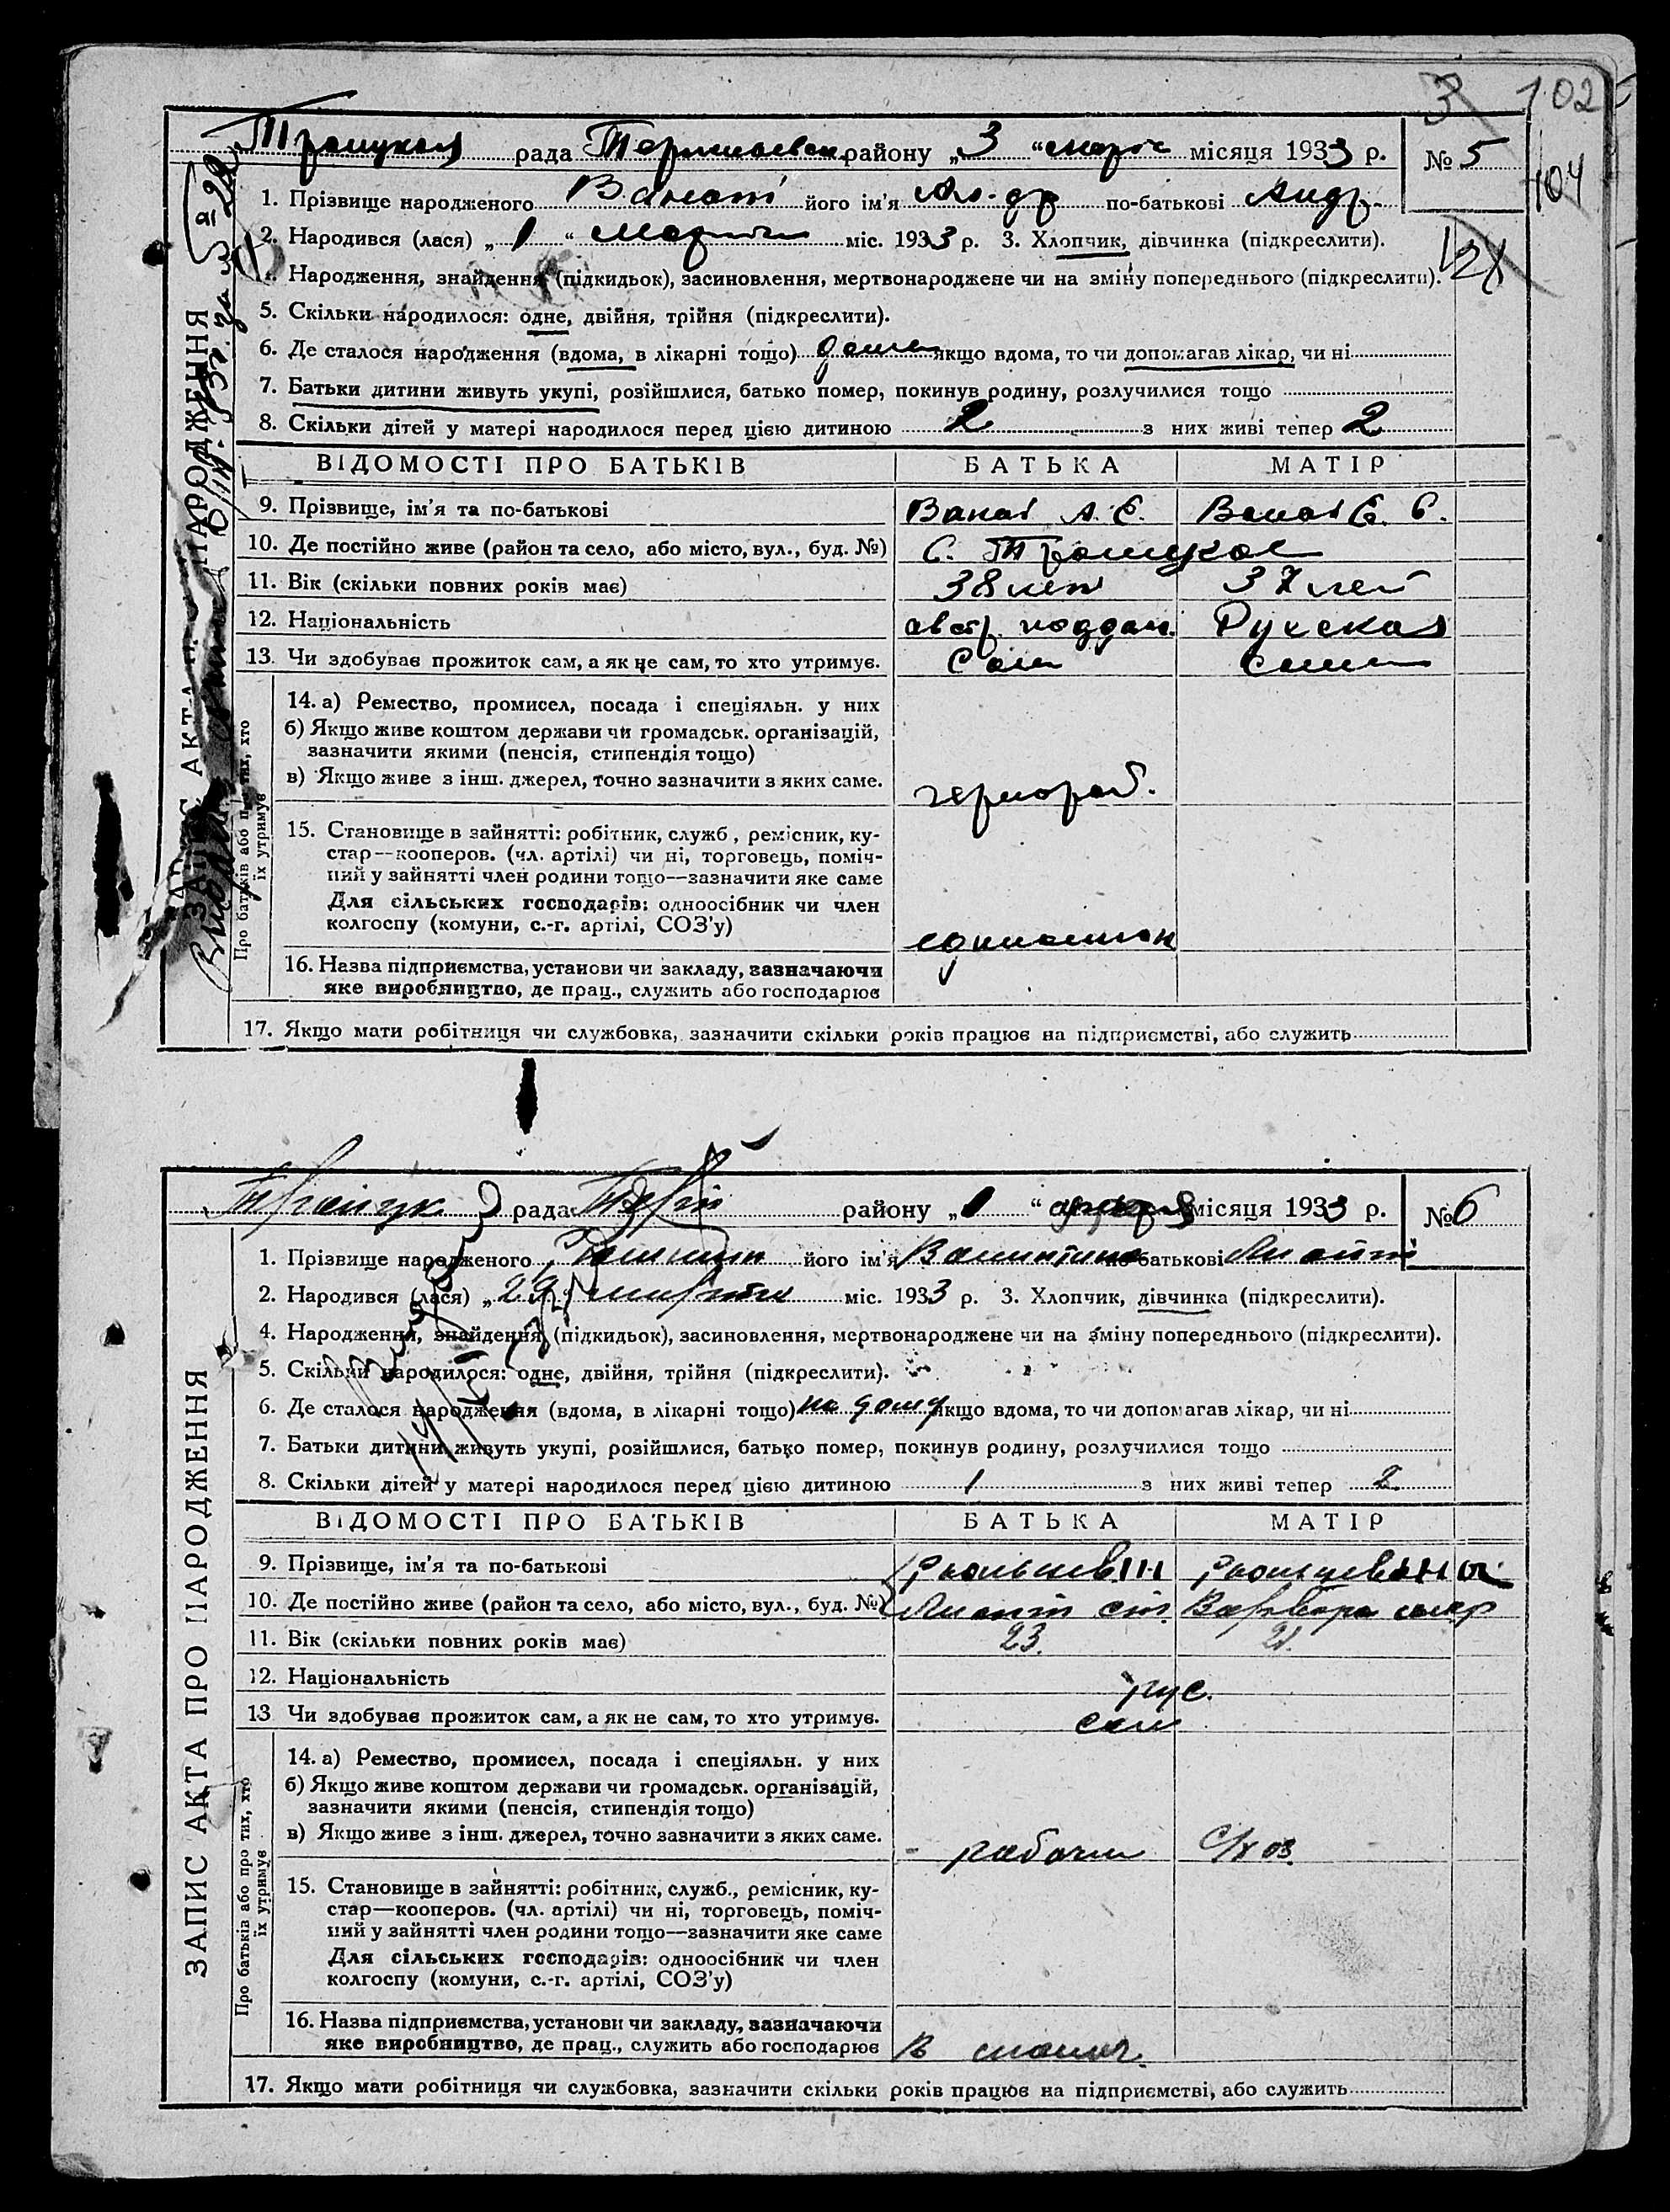 3 102
104
121
Троицкая рада района „3“ місяця 1933 р. № 5
1. Прізвище народженого його ім'я Ал-др по-батькові Андр.
2. Народився (лася) „1“ Марта міс. 1933 р. 3. Хлопчик, дівчинка (підкреслити).
Народження, знайдення (підкидьок), засиновлення, мертвонароджене чи на зміну попереднього (підкреслити).
5. Скільки народилося: одне, двійня, трійня (підкреслити).
6. Де сталося народження (вдома, в лікарні тощо) дома якщо вдома, то чи допомагав лікар, чи ні
7. Батьки дитини живуть укупі, розійшлися, батько помер, покинув родину, розлучилися тощо
8. Скільки дітей у матері народилося перед цією дитиною 2 з них живі тепер 2
ВІДОМОСТІ ПРО БАТЬКІВ БАТЬКА МАТІР
9. Прізвище, ім'я та по-батькові
10. Де постійно живе (район та село, або місто, вул., буд. №) С. Троицкое
11. Вік (скільки повних років має) 38 лет 37 лет
12. Національність австр. поддан. Русская
13. Чи здобував прожиток сам, а як не сам, то хто утримує. Сам сама
14. а) Ремество, промисел, посада і спеціяльн. у них
б) Якщо живе коштом держави чи громадськ. організацій,
зазначити якими (пенсія, стипендія тощо)
в) Якщо живе з інш. джерел, точно зазначити з яких саме. чернораб.
15. Становище в зайнятті: робітник, служб., ремісник, ку-
стар—кооперов. (чл. артілі) чи ні, торговець, поміч-
ний у зайнятті член родини тощо—зазначити яке саме
Для сільських господарів: одноосібник чи член
колгоспу (комуни, с.-г. артілі, СОЗ'у)
16. Назва підприємства, установи чи закладу, зазначаючи
яке виробництво, де прац., служить або господарює
17. Якщо мати робітниця чи службовка, зазначити скільки років працює на підприємстві, або служить
Про батьків або про тих, хто
їх утримує
рада району „1“ місяця 1933 р. № 6
1. Прізвище народженого його ім'я Валентина по-батькові
2. Народився (лася) „29“ марта міс. 1933 р. 3. Хлопчик, дівчинка (підкреслити).
4. Народження, знайдення (підкидьок), засиновлення, мертвонароджене чи на зміну попереднього (підкреслити).
5. Скільки народилося: одне, двійня, трійня (підкреслити).
6. Де сталося народження (вдома, в лікарні тощо) на дому якщо вдома, то чи допомагав лікар, чи ні
7. Батьки дитини живуть укупі, розійшлися, батько помер, покинув родину, розлучилися тощо
8. Скільки дітей у матері народилося перед цією дитиною 1 з них живі тепер 2
ВІДОМОСТІ ПРО БАТЬКІВ БАТЬКА МАТІР
9. Прізвище, ім'я та по-батькові
10. Де постійно живе (район та село, або місто, вул., буд. №) Варвара
11. Вік (скільки повних років має) 23. 21.
12. Національність рус.
13 Чи здобував прожиток сам, а як не сам, то хто утримує. сам
14. а) Ремество, промисел, посада і спеціяльн. у них
б) Якщо живе коштом держави чи громадськ. організацій,
зазначити якими (пенсія, стипендія тощо)
в) Якщо живе з інш. джерел, точно зазначити з яких саме. рабочий
15. Становище в зайнятті: робітник, служб., ремісник, ку-
стар—кооперов. (чл. артілі) чи ні, торговець, поміч-
ний у зайнятті член родини тощо—зазначити яке саме
Для сільських господарів: одноосібник чи член
колгоспу (комуни, с.-г. артілі, СОЗ'у)
16. Назва підприємства, установи чи закладу, зазначаючи
яке виробництво, де прац., служить або господарює
17. Якщо мати робітниця чи службовка, зазначити скільки років працює на підприємстві, або служить
ЗАПИС АКТА ПРО НАРОДЖЕННЯ
Про батьків або про тих, хто
їх утримує